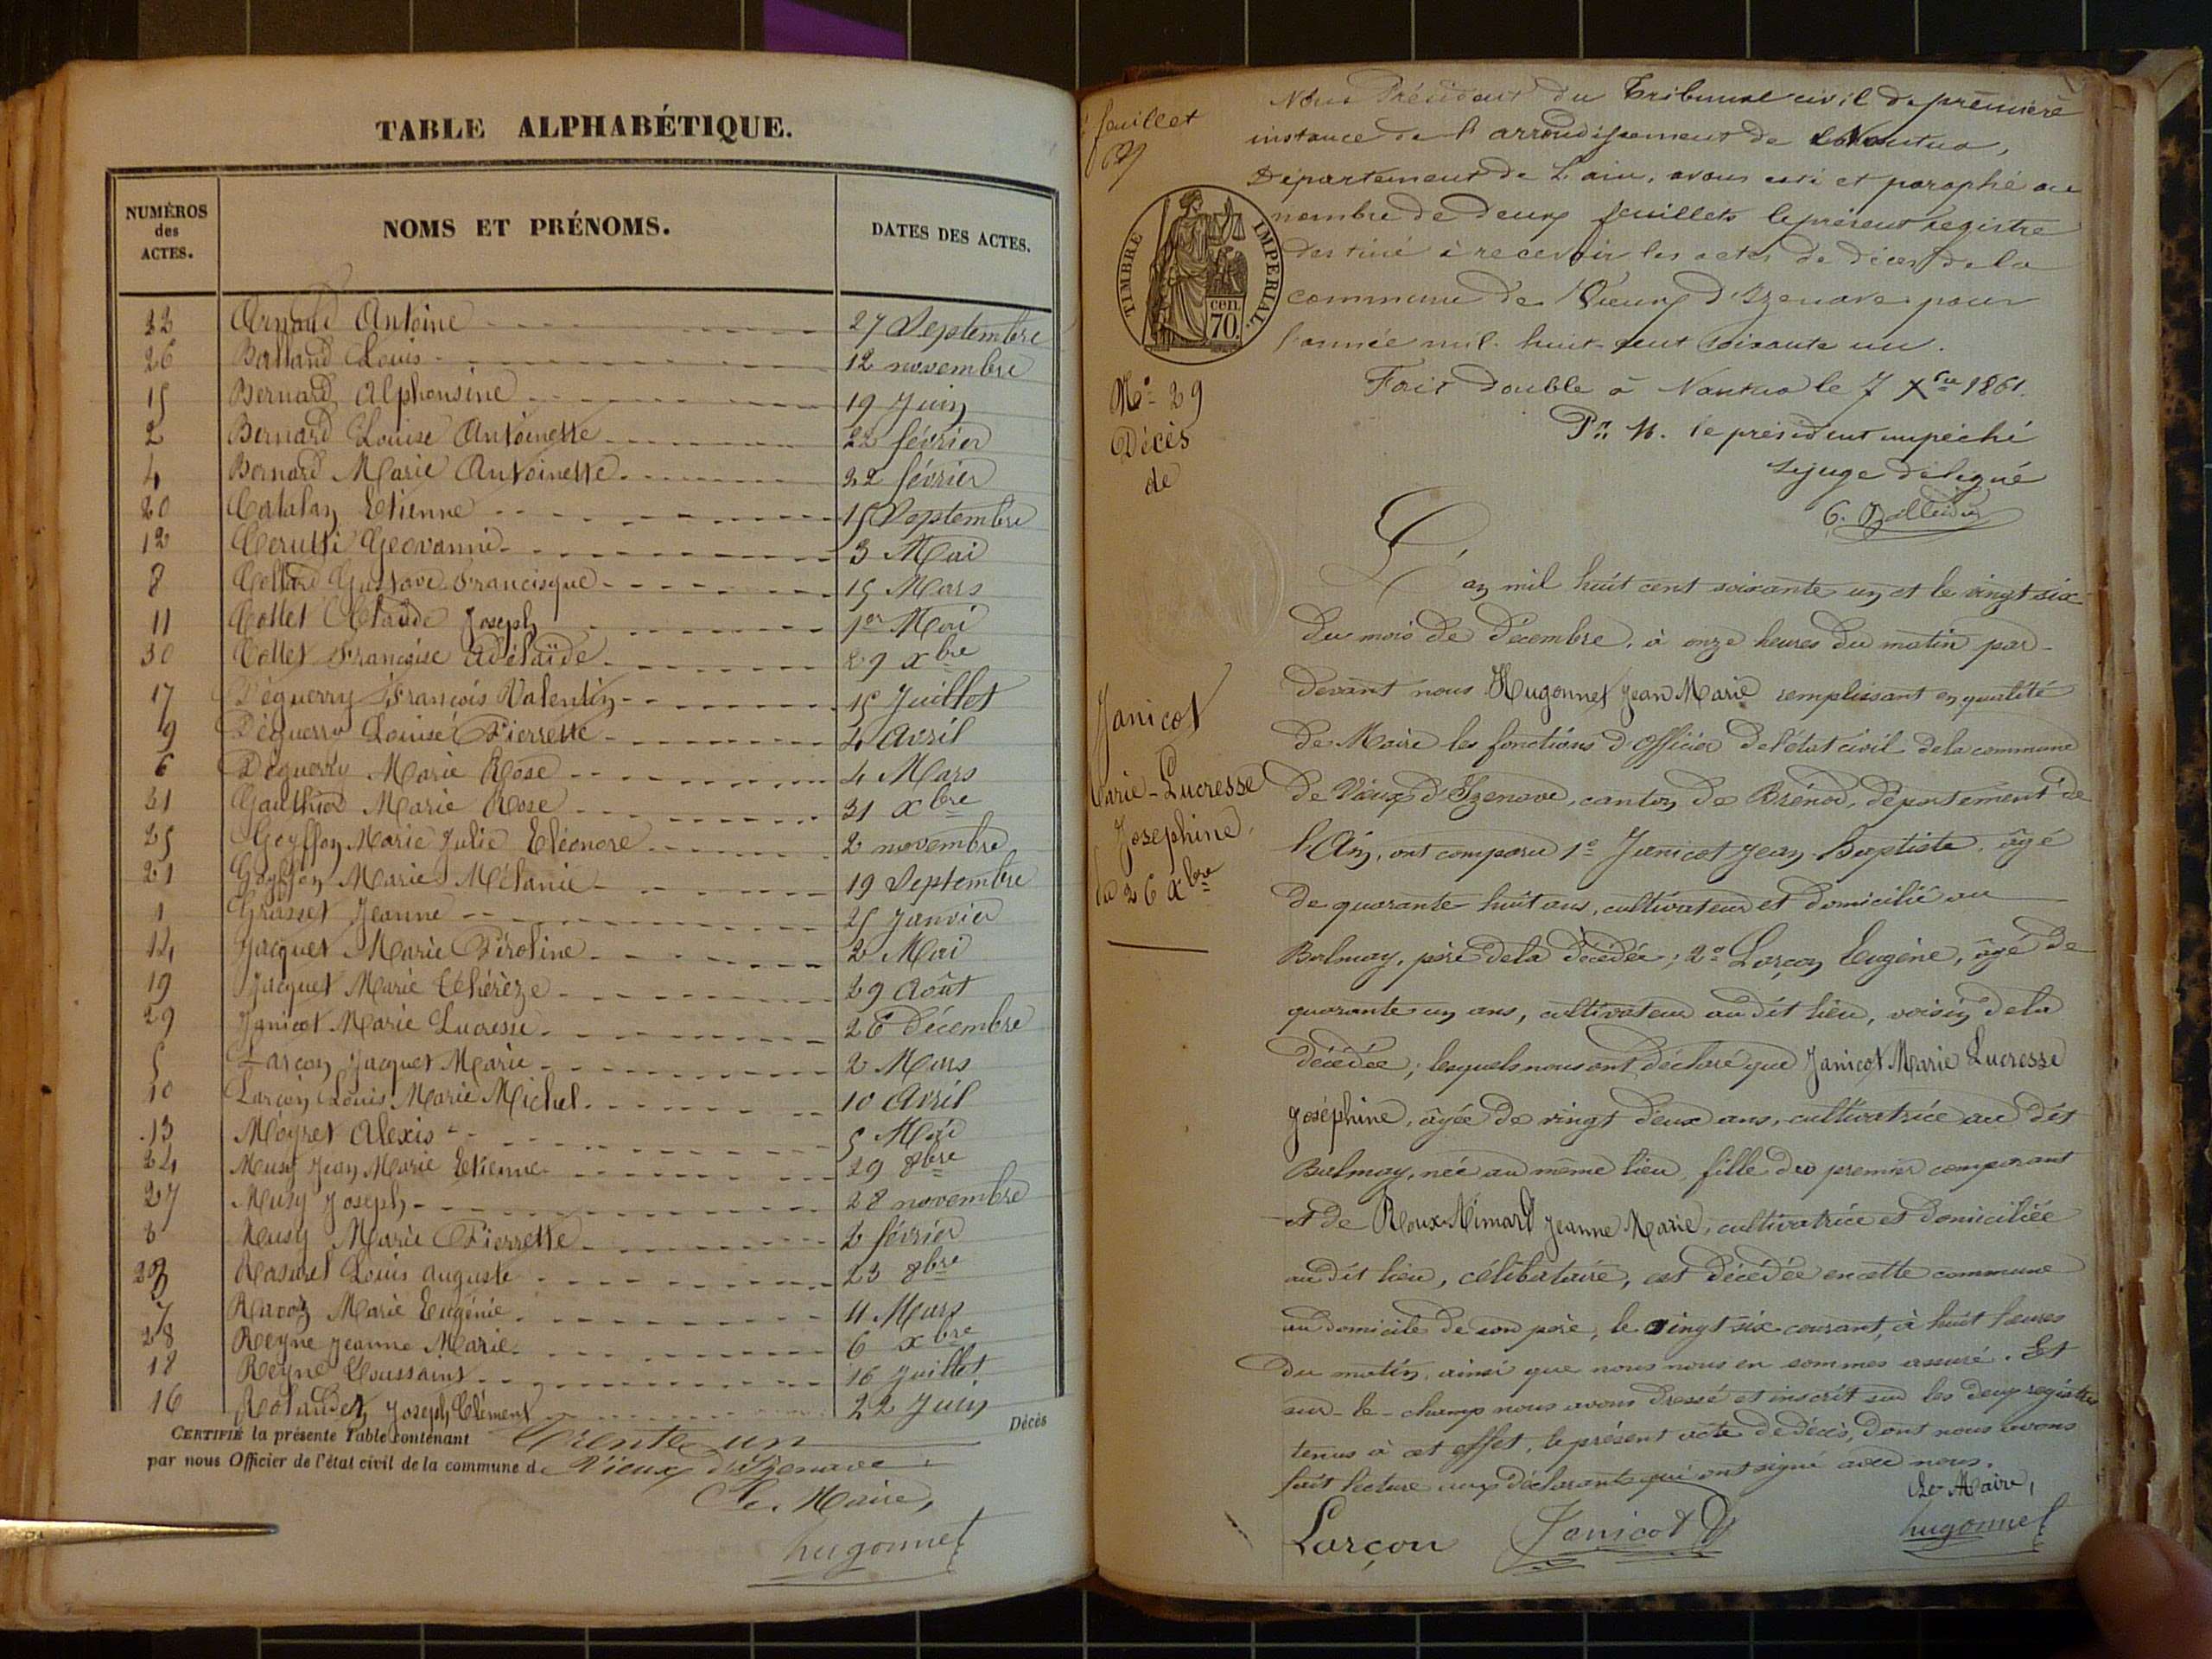 TABLE ALPHABÉTIQUE.
NUMÉROS des ACTES. NOMS ET PRÉNOMS. DATES DES ACTES.
22 Arnaud Antoine 27 Septembre
26 Balland Louis 12 novembre
15 Bernard Alphonsine 19 Juin
2 Bernard Louise Antoinette 22 février
4 Bernard Marie Antoinette 22 février
20 Catalan Etienne 15 Septembre
12 Cerutti Geovanni 3 Mai
8 Collard Gustave Francisque 15 Mars
11 Collet Claude Joseph 1er Mai
30 Collet Françoise Adélaïde 29 xbre
17 Déguerry François Valentin 15 Juillet
9 Déguerry Louise Pierrette 4 Avril
6 Déguerry Marie Rose 4 Mars
31 Gauthier Marie Rose 31 xbre
25 Goyffon Marie Julie Eléonore 2 novembre
21 Goyffon Marie Mélanie 19 Septembre
1 Grasset Jeanne 25 Janvier
14 Jacquet Marie Péroline 2 Mai
19 Jacquet Marie Thérèze 29 Août
29 Janicot Marie Lucresse 26 Décembre
5 Larçon Jacquet Marie 2 Mars
10 Larçon Louis Marie Michel 10 Avril
13 Moyret Alexis 5 Mai
24 Musy Jean Marie Etienne 29 8bre
27 Musy Joseph 28 novembre
3 Musy Marie Pierrette 2 février
23 Rasurel Louis Auguste 23 8bre
7 Ravoz Marie Eugénie 11 Mars
28 Reyne Jeanne Marie 6 xbre
18 Reyne Toussaint 16 Juillet
16 Rolandez Joseph Clément 22 Juin
CERTIFIÉ la présente Table contenant Trente un Décès
par nous Officier de l'état civil de la commune de Vieux d'Izenave.
Le Maire,
hugonnet
feuillet
TIMBRE IMPÉRIAL.
cen. 70.
Nous Président du Tribunal civil de première
instance de l'arrondissement de Nantua,
Département de L'ain, avons coté et paraphé au
nombre de deux feuillets le présent registre
destiné à recevoir les actes de décès de la
commune de Vieux d'Izenave pour
l'année mil huit cent soixante un.
Fait double à Nantua le 7 Xbre 1861.
Pr. M. le président empêché
Le juge délégué
No 29
Décès
de
Janicot
Marie-Lucresse
Josephine,
le 26 Xbre
L'an mil huit cent soixante un et le vingt six
du mois de Décembre, à onze heures du matin par-
devant nous Hugonnet Jean Marie remplissant en qualité
de Maire les fonctions d'Officier de l'état civil de la commune
de Vieux d'Izenave, canton de Brénod, département de
l'Ain, ont comparu 1o Janicot Jean-Baptiste, âgé
de quarante-huit ans, cultivateur et domicilié au
Balmay, père de la décédée; 2o Larçon Eugène, âgé de
quarante un ans, cultivateur au dit lieu, voisin de la
décédée; lesquels nous ont déclaré que Janicot Marie Lucresse
Joséphine, âgée de vingt deux ans, cultivatrice au dit
Balmay, née au même lieu, fille du premier comparant
et de Roux-Mimard Jeanne Marie, cultivatrice et domiciliée
au dit lieu, célibataire, est décédée en cette commune
au domicile de son père, le vingt-six courant, à huit heures
du matin, ainsi que nous nous en sommes assuré. Et
sur-le-champ nous avons dressé et inscrit sur les deux registres
tenus à cet effet, le présent acte de décès, dont nous avons
fait lecture aux déclarants qui ont signé avec nous.
Le Maire,
Larçon Janicot hugonnet